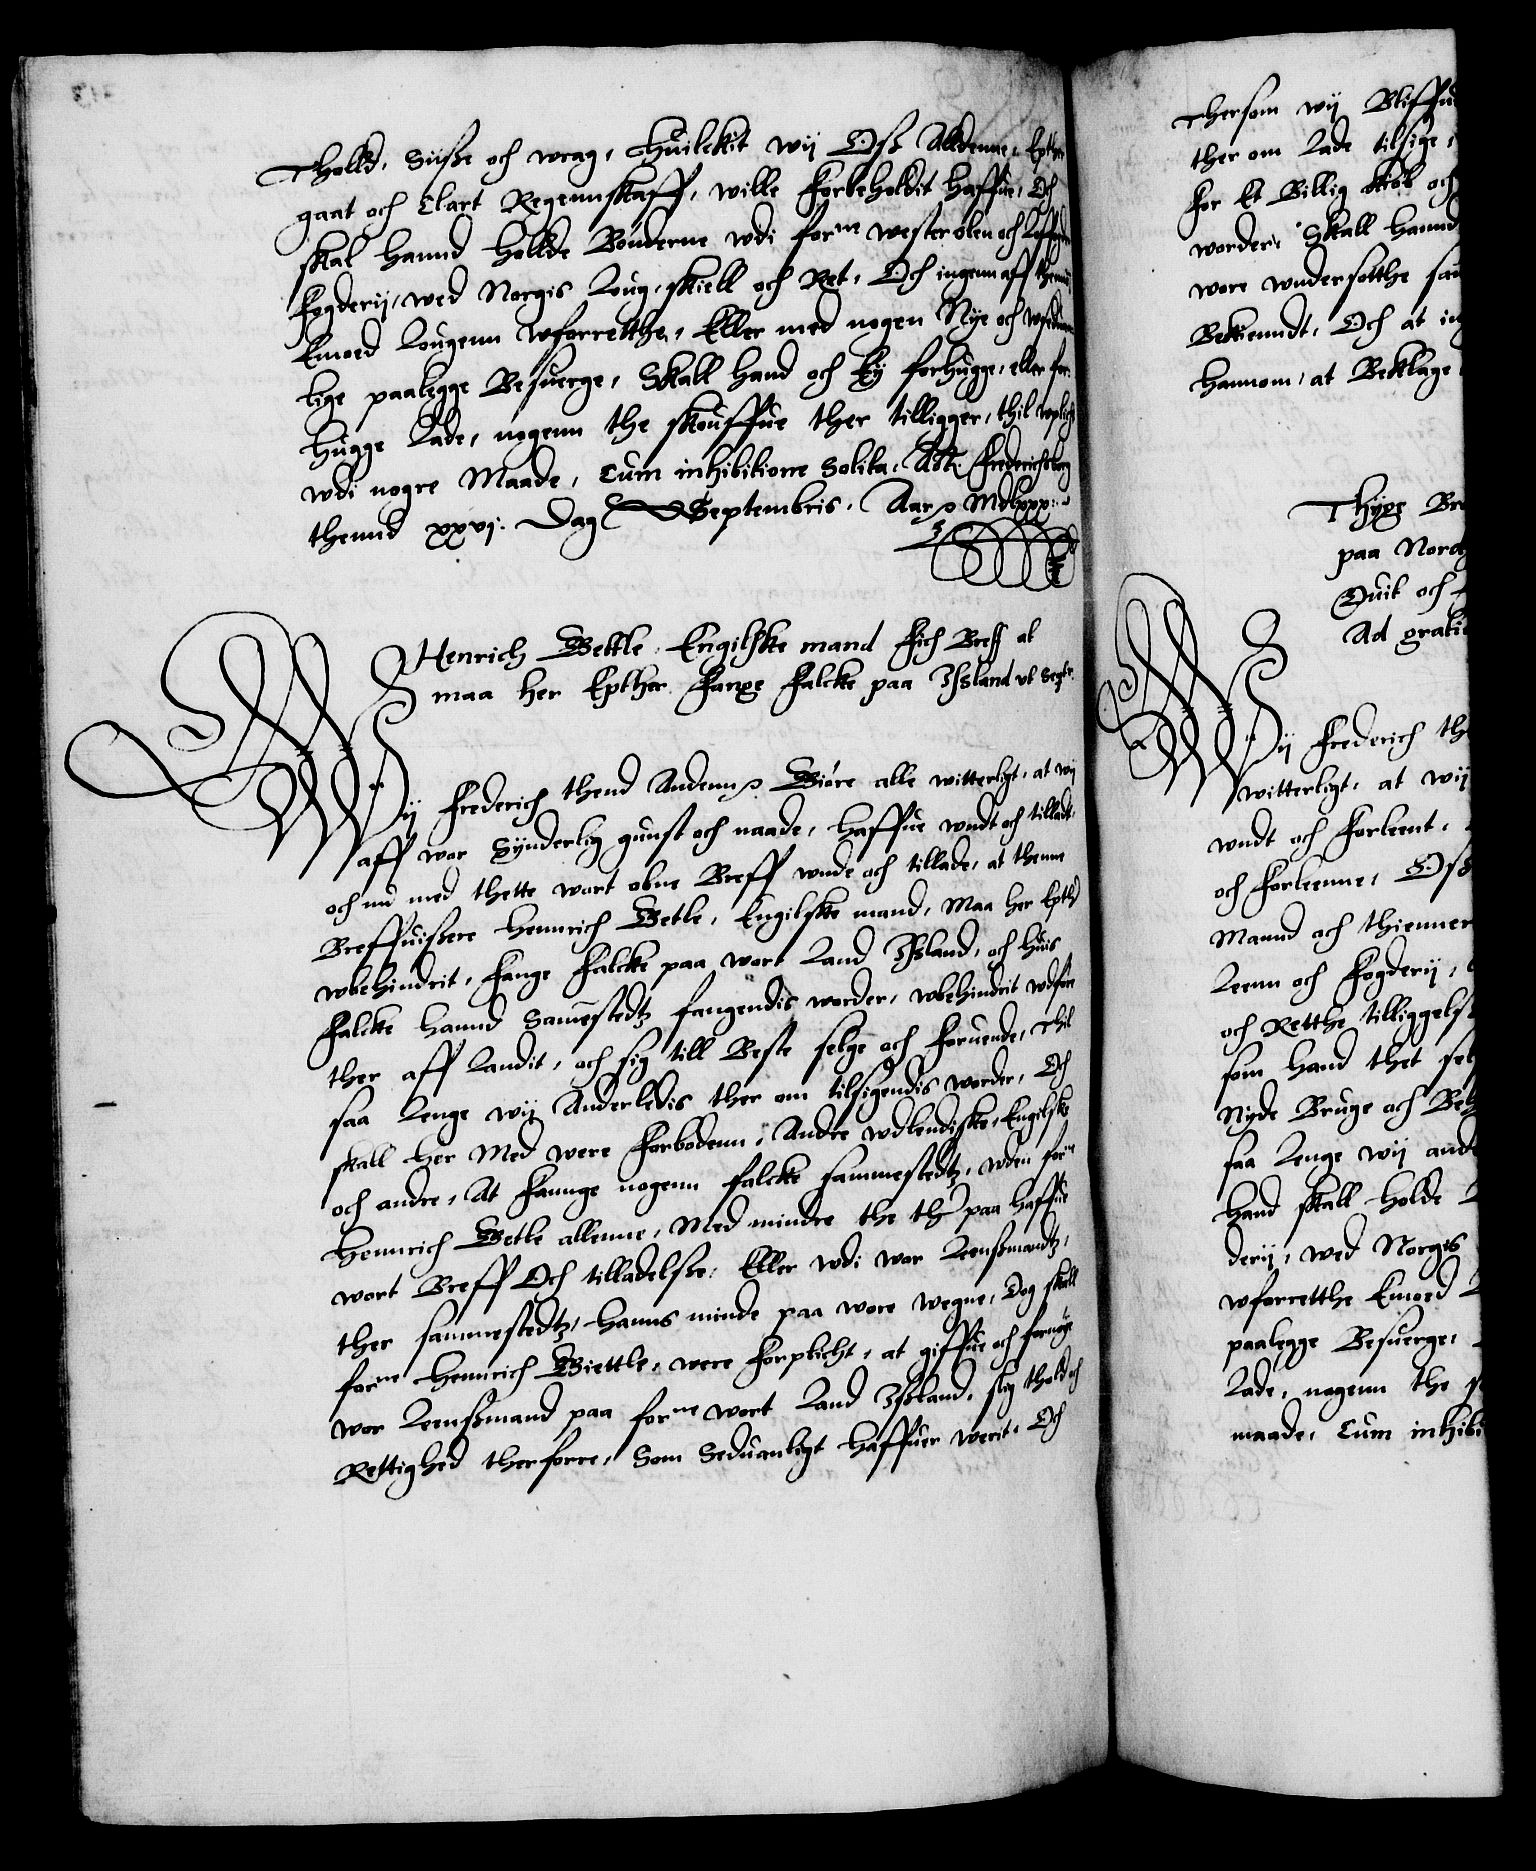 Tholld, Siisze och wrag, Huilckit wij Osz Alldenne, Epther
gaat och Clart Regennskaff, wille Forbeholdit haffue, Och
skal hannd hollde Bønderne wdi forne wester olen och Loffoden
Fogderij, wed Norgis Loug, skiell och Ret, Och ingenn aff thennom
Emoed Lougenn wforretthe, Eller med nogen Nye och wseduan-
lige paalegge Besuerge, Skall hand och Ey forhugge, eller for-
hugge Lade, nogenn the skouffue ther tilligger, thil wplicht
wdi nogre Maade, Cum inhibitione Solita, Act. Frederichsborg
thennd xxvj. Dag Septembris, Aar &c. Mdlxxx.
Henrich Bettle Engilske mand Fich Breff at
maa her Epther Fange Falcke paa Issland vt Sept.
Wij Frederich thend Andenn &c. Giøre alle witterligt, at wij
aff wor Synderlig gunst och naade, haffue wndt och tilladt,
och nu med thette wort obne Breff wnde och tillade, at thenne
Breffuiszere Hennrich Betle, Engilske mand, Maa her Epther
wbehindrit, Fange Falcke paa wort Land Issland, och huis
Falcke hannd Samestedtz fangendis worder, wbehindrit wdføre
ther aff Landit, och sig till Beste selge och Foruende, Thil
saa Lenge wij Anderledis ther om tilsigendis worder, Och
skall her Med were Forbodenn, Andre wdlendiske, Engilske
och andre, At Fannge nogenn falcke sammestedtz, wden forne
Hennrich Betle allenne, Med mindre the ther paa haffue
wort Breff Och tilladelsze, Eller wdi wor Lennszmandtz,
ther sammestedtz, hanns minde paa wore wegne, Dog skall
forne Hennrich Biettle, were Forplicht, at giffue och fornøye
wor Lennszmand paa forne wort Land Iszland, slig thold och
Rettighed therforre, Som Seduanligt haffuer werit, Och
Thersom wij Bliffue
ther om Lade tilsige,
for Et Billig Kiøb och
worder, Skall hannd
wore wndersotthe saa
Bekiendt, Och at in
hannom, at Beklage
Thyge Br
paa Nord
Quit och
Ad grati
Wij Frederich th
witterligt, at wij
wndt och Forleent,
och Forleenne, Osz
Mannd och thienner
Leenn och Fogderij,
och Retthe tilliggels
som hand thet sel
Nyde Bruge och Beh
saa Lenge wij and
hand skall holde
derij, wed Norgis
wforretthe Emoed L
paalegge Besuerge,
Lade, nogenn the s
maade, Cum inhibi